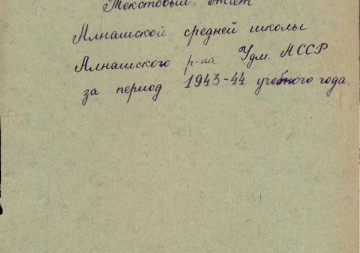 Текстовый отчёт
Алнашской средней школы
Алнашского р-на Удм. АССР
за период 1943-44 учебного года.